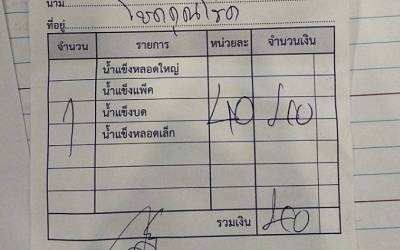 นาม
ที่อยู่ โชคคุณโชค
จำนวน รายการ หน่วยละ จำนวนเงิน
น้ำแข็งหลอดใหญ่
น้ำแข็งแพ็ค
1 น้ำแข็งบด 40 40
น้ำแข็งหลอดเล็ก
รวมเงิน 40